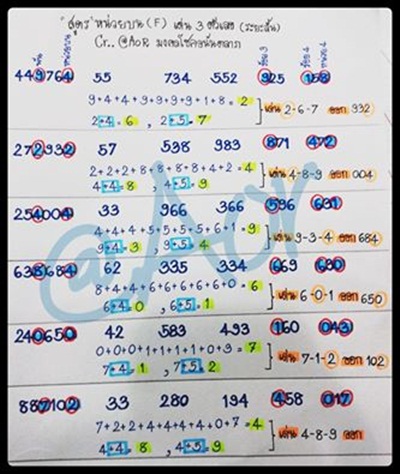 "สูตร" หน่วยบน (F) เด่น 3 ตัวเลข (ระยะสั้น)
Cr.. @AOR
พัน หน่วยบน ร้อย 3 ร้อย 4 หน่วย 4
449764 55 734 552 925 158
9+4+4+9+9+9+9+1+8=2
2+4=6, 2+5=7 } เด่น 2-6-7 ออก 932
272932 57 538 983 871 472
2+2+2+8+8+8+8+4+2=4
4+4=8, 4+5=9 } เด่น 4-8-9 ออก 004
254004 33 966 366 596 631
4+4+4+5+5+5+5+6+1=9
9+4=3, 9+5=4 } เด่น 9-3-4 ออก 684
638684 62 335 334 669 630
8+4+4+6+6+6+6+6+0=6
6+4=0, 6+5=1 } เด่น 6-0-1 ออก 650
240650 42 583 493 160 043
0+0+0+1+1+1+1+0+3=7
7+4=1, 7+5=2 } เด่น 7-1-2 ออก 102
887102 33 280 194 458 017
7+2+2+4+4+4+4+0+7=4
4+4=8, 4+5=9 } เด่น 4-8-9 ออก
@Aor